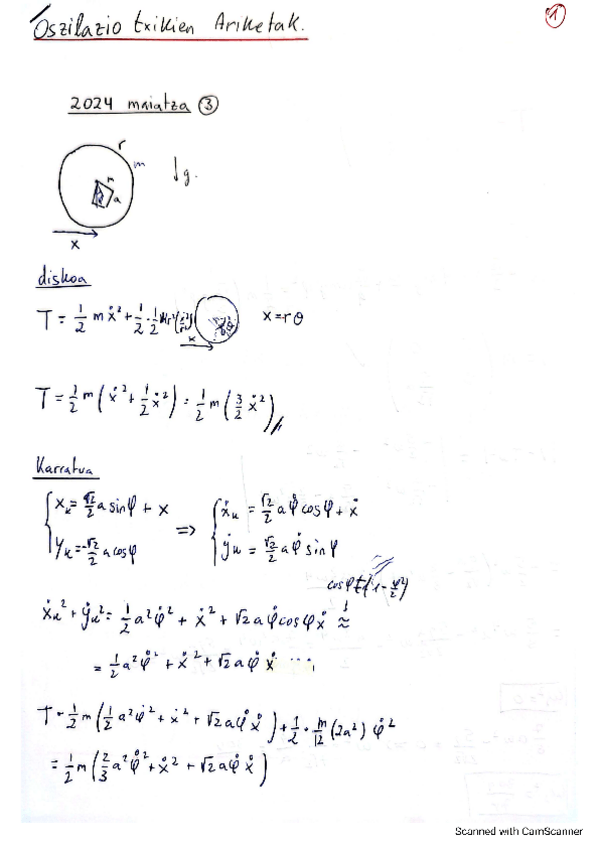 Oszilazio txikien Ariketak.
1
2024 maiatza ③
r
m
↓g.
m
a
x
diskoa
T = 1/2 m ẋ² + 1/2 · 1/2 mr²(ẋ²/r²)
θ
x
x = rθ
T = 1/2 m (ẋ² + 1/2 ẋ²) = 1/2 m (3/2 ẋ²)
Karratua
{ xₖ = √2/2 a sinφ + x => { ẋₖ = √2/2 a φ̇ cosφ + ẋ
yₖ = -√2/2 a cosφ ẏₖ = √2/2 a φ̇ sinφ
cosφ ≈ (1 - φ²/2)
ẋₖ² + ẏₖ² = 1/2 a² φ̇² + ẋ² + √2 a φ̇ cosφ ẋ ≈
= 1/2 a² φ̇² + ẋ² + √2 a φ̇ ẋ ...
T = 1/2 m (1/2 a² φ̇² + ẋ² + √2 a φ̇ ẋ) + 1/2 · m/12 (2a²) φ̇²
= 1/2 m (2/3 a² φ̇² + ẋ² + √2 a φ̇ ẋ)
Scanned with CamScanner